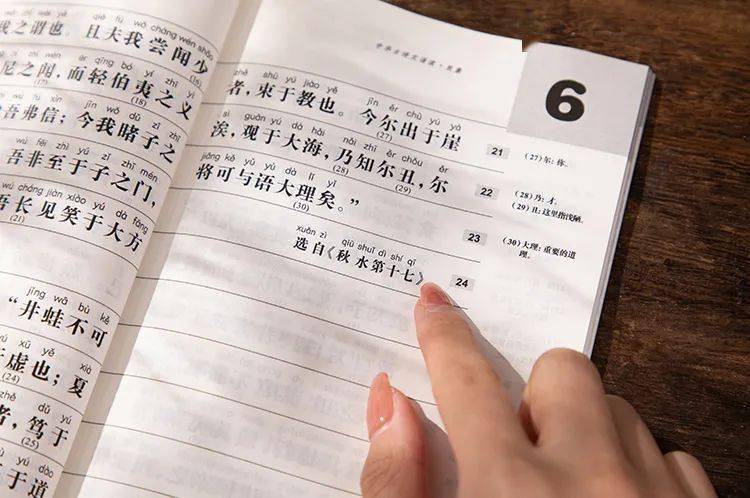 qiě fū wǒ cháng wén shǎo
我之谓也。且夫我尝闻少
ér qīng bó yí zhī yì
尼之闻，而轻伯夷之义
(17) (18)
jīn wǒ dǔ zǐ zhī
吾弗信；今我睹子之
wú fēi zhì yú zǐ zhī mén
吾非至于子之门，
wú cháng jiàn xiào yú dà fāng
吾长见笑于大方
(21)
jǐng wā bù kě
“井蛙不可
xū yě xià
于虚也；夏
(24)
zhě dǔ yú
者，笃于
(25)
yú dào
于道
6
zhě shù yú jiào yě jīn ěr chū yú yá
者，束于教也。今尔出于崖 21
(27)
(27) 尔：你。
sì guān yú dà hǎi nǎi zhī ěr chǒu ěr
涘，观于大海，乃知尔丑，尔 22
(28) (29)
(28) 乃：才。
(29) 丑：这里指浅陋。
jiāng kě yǔ yǔ dà lǐ yǐ
将可与语大理矣。” 23
(30)
(30) 大理：重要的道
理。
xuǎn zì qiū shuǐ dì shí qī
选自《秋水第十七》 24